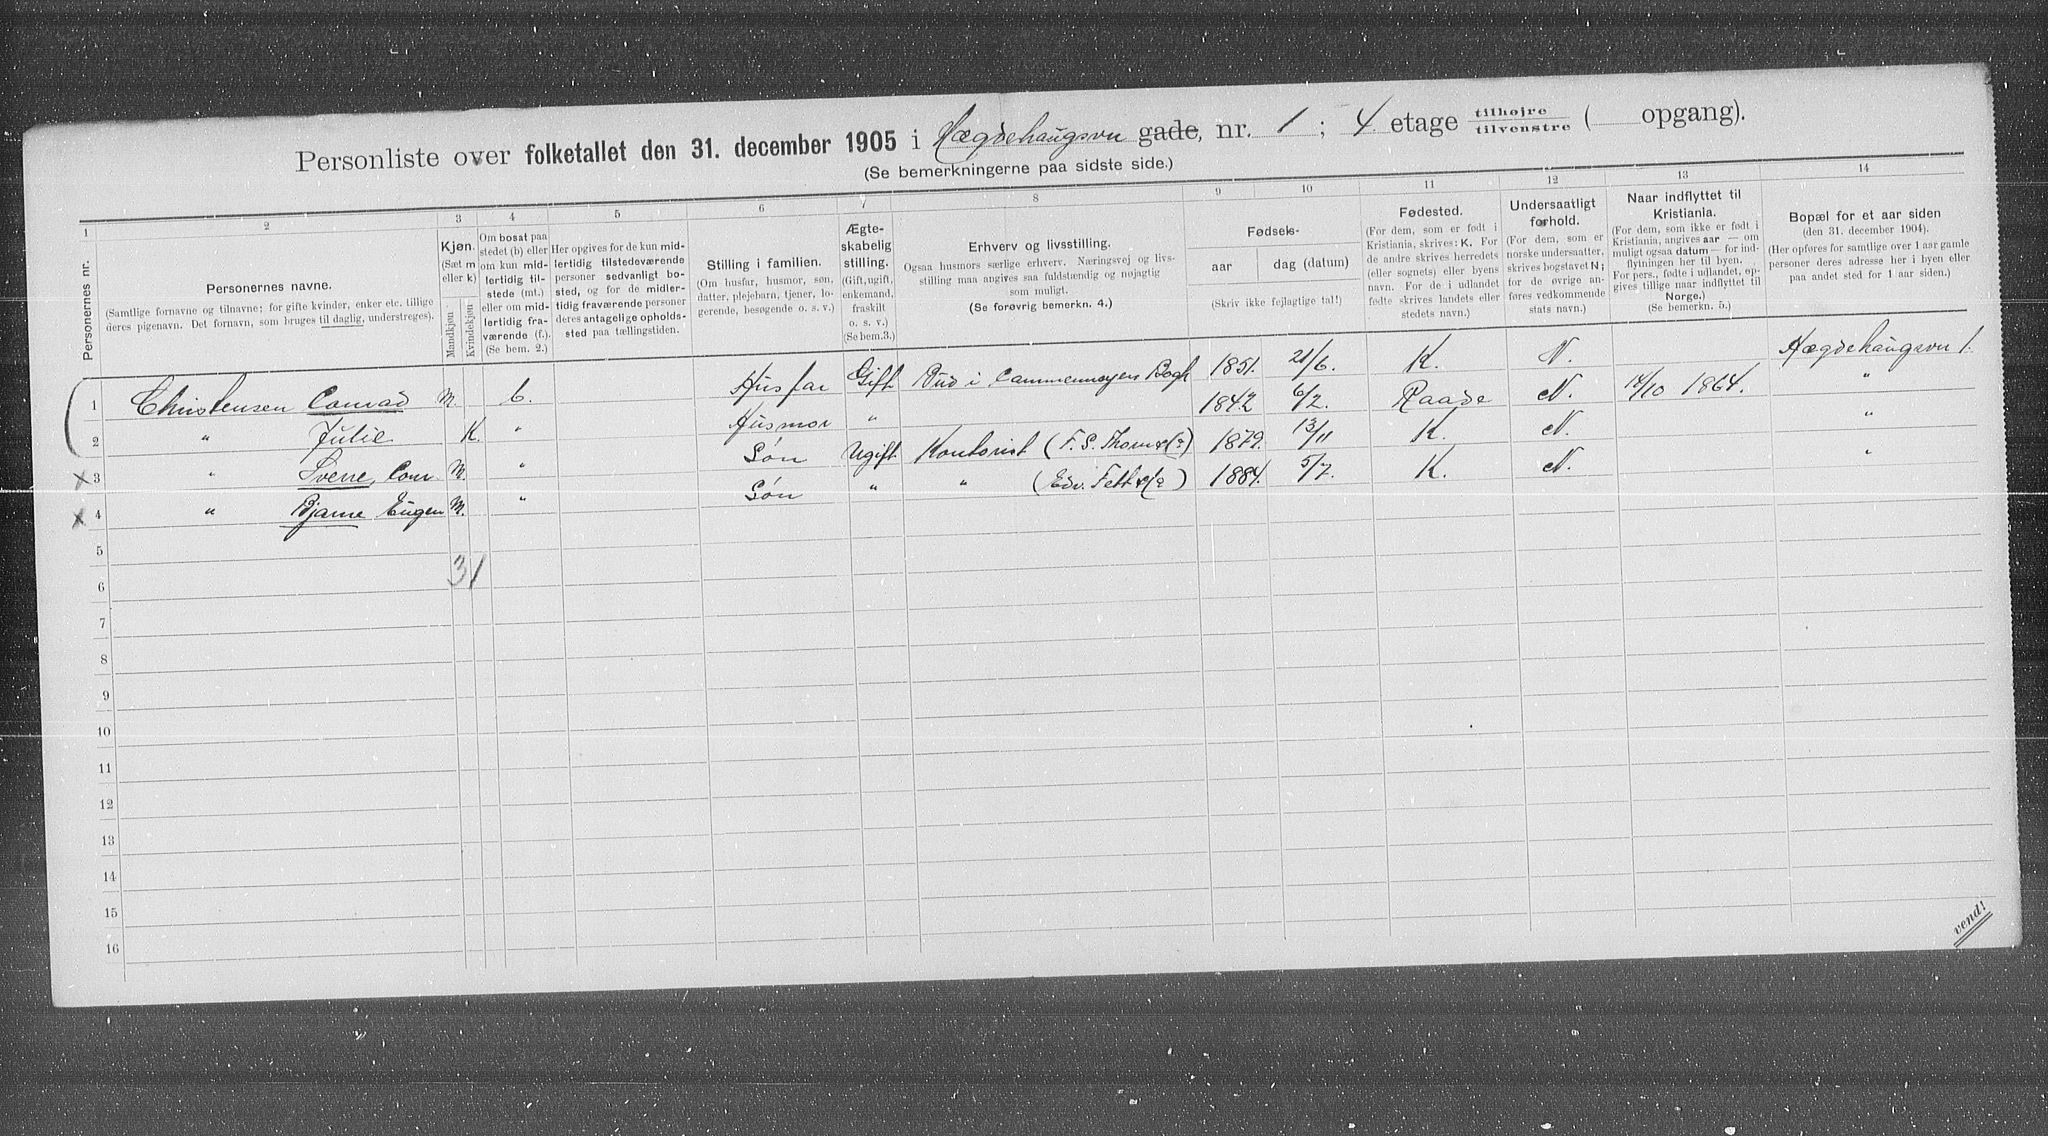 Personliste over folketallet den 31. december 1905 i Hægdehaugsvn gade, nr. 1 ; 4 etage tilhøjre tilvenstre ( opgang).
(Se bemerkningerne paa sidste side.)
1 2 3 4 5 6 7 8 9 10 11 12 13 14
Personernes nr.
Personernes navne.
(Samtlige fornavne og tilnavne; for gifte kvinder, enker etc. tillige
deres pigenavn. Det fornavn, som bruges til daglig, understreges).
Kjøn.
(Sæt m
eller k)
Mandkjøn
Kvindekjøn
Om bosat paa
stedet (b) eller
om kun mid-
lertidig til-
stede (mt.)
eller om mid-
lertidig fra-
værende (f.).
(Se bem. 2.)
Her opgives for de kun mid-
lertidig tilstedeværende
personer sedvanligt bo-
sted, og for de midler-
tidig fraværende personer
deres antagelige opholds-
sted paa tællingstiden.
Stilling i familien.
(Om husfar, husmor, søn,
datter, plejebarn, tjener, lo-
gerende, besøgende o. s. v.)
Ægte-
skabelig
stilling.
(Gift, ugift,
enkemand,
fraskilt
o. s. v.)
(Se bem.3.)
Erhverv og livsstilling.
Ogsaa husmors særlige erhverv. Næringsvej og livs-
stilling maa angives saa fuldstændig og nøjagtig
som muligt.
(Se forøvrig bemerkn. 4.)
Fødsels-
aar dag (datum)
(Skriv ikke fejlagtige tal!)
Fødested.
(For dem, som er født i
Kristiania, skrives: K. For
de andre skrives herredets
(eller sognets) eller byens
navn. For de i udlandet
fødte skrives landets eller
stedets navn.)
Undersaatligt
forhold.
(For dem, som er
norske undersaatter,
skrives bogstavet N;
for de øvrige an-
føres vedkommende
stats navn.)
Naar indflyttet til
Kristiania.
(For dem, som ikke er født i
Kristiania, angives aar — om
muligt ogsaa datum — for ind-
flytningen her til byen.
For pers., fødte i udlandet, op-
gives tillige naar indflyttet til
Norge.)
(Se bemerkn. 5.)
Bopæl for et aar siden
(den 31. december 1904).
(Her opføres for samtlige over 1 aar gamle
personer deres adresse her i byen eller
paa andet sted for 1 aar siden.)
1 Christensen Conrad M. b. Husfar Gift Bud i Cammermeyers Bogh 1851. 21/6. K. N. Hægdehaugsvn 1.
2 " Julie K. " Husmor " 1842 6/2. Raade N. 14/10 1864. "
x 3 " Sverre, Conr. M. " Søn Ugift Kontorist (F. S. Thom & Co) 1879. 13/11 K. N. "
x 4 " Bjarne Eugen M. " Søn " " (Edv. Fett & Co) 1884. 5/7. K. N. "
5
6 3 1
7
8
9
10
11
12
13
14
15
16
vend!